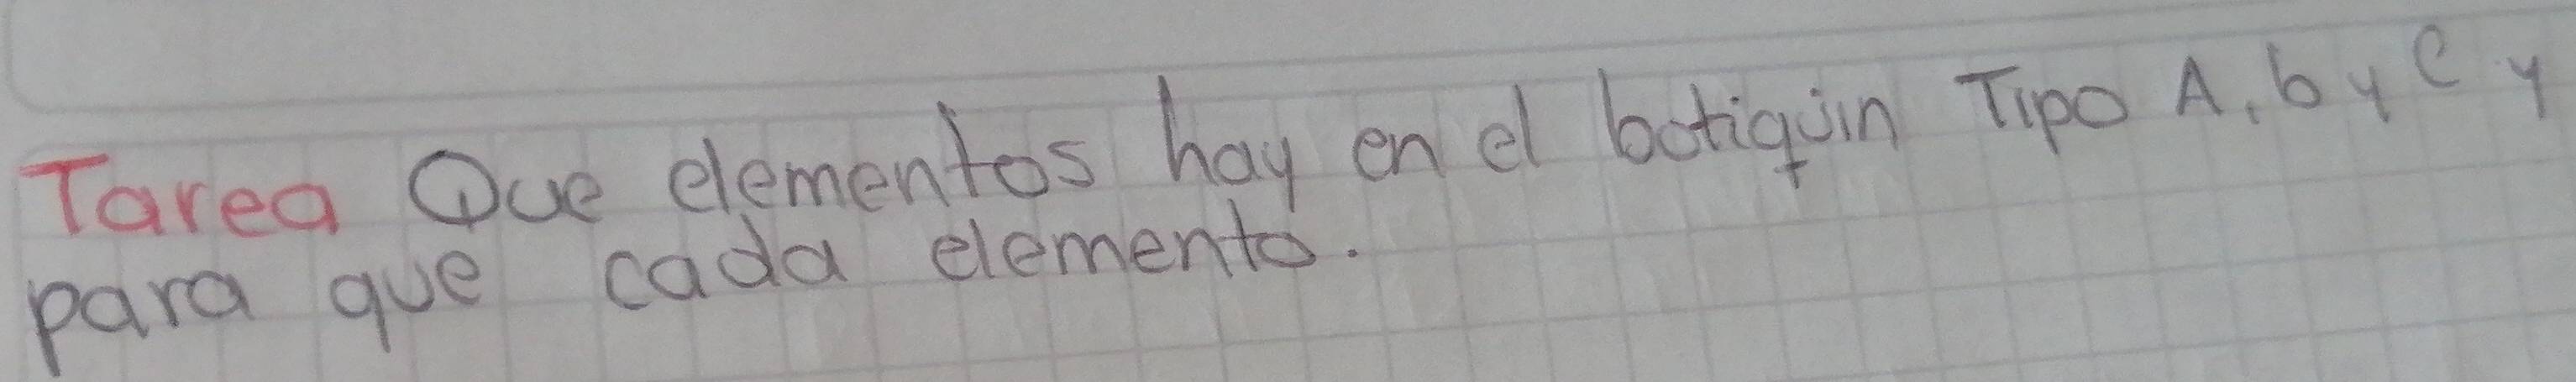 Tarea Que elementos hay en el botiquin Tipo A, b y C y
para que cada elemento.